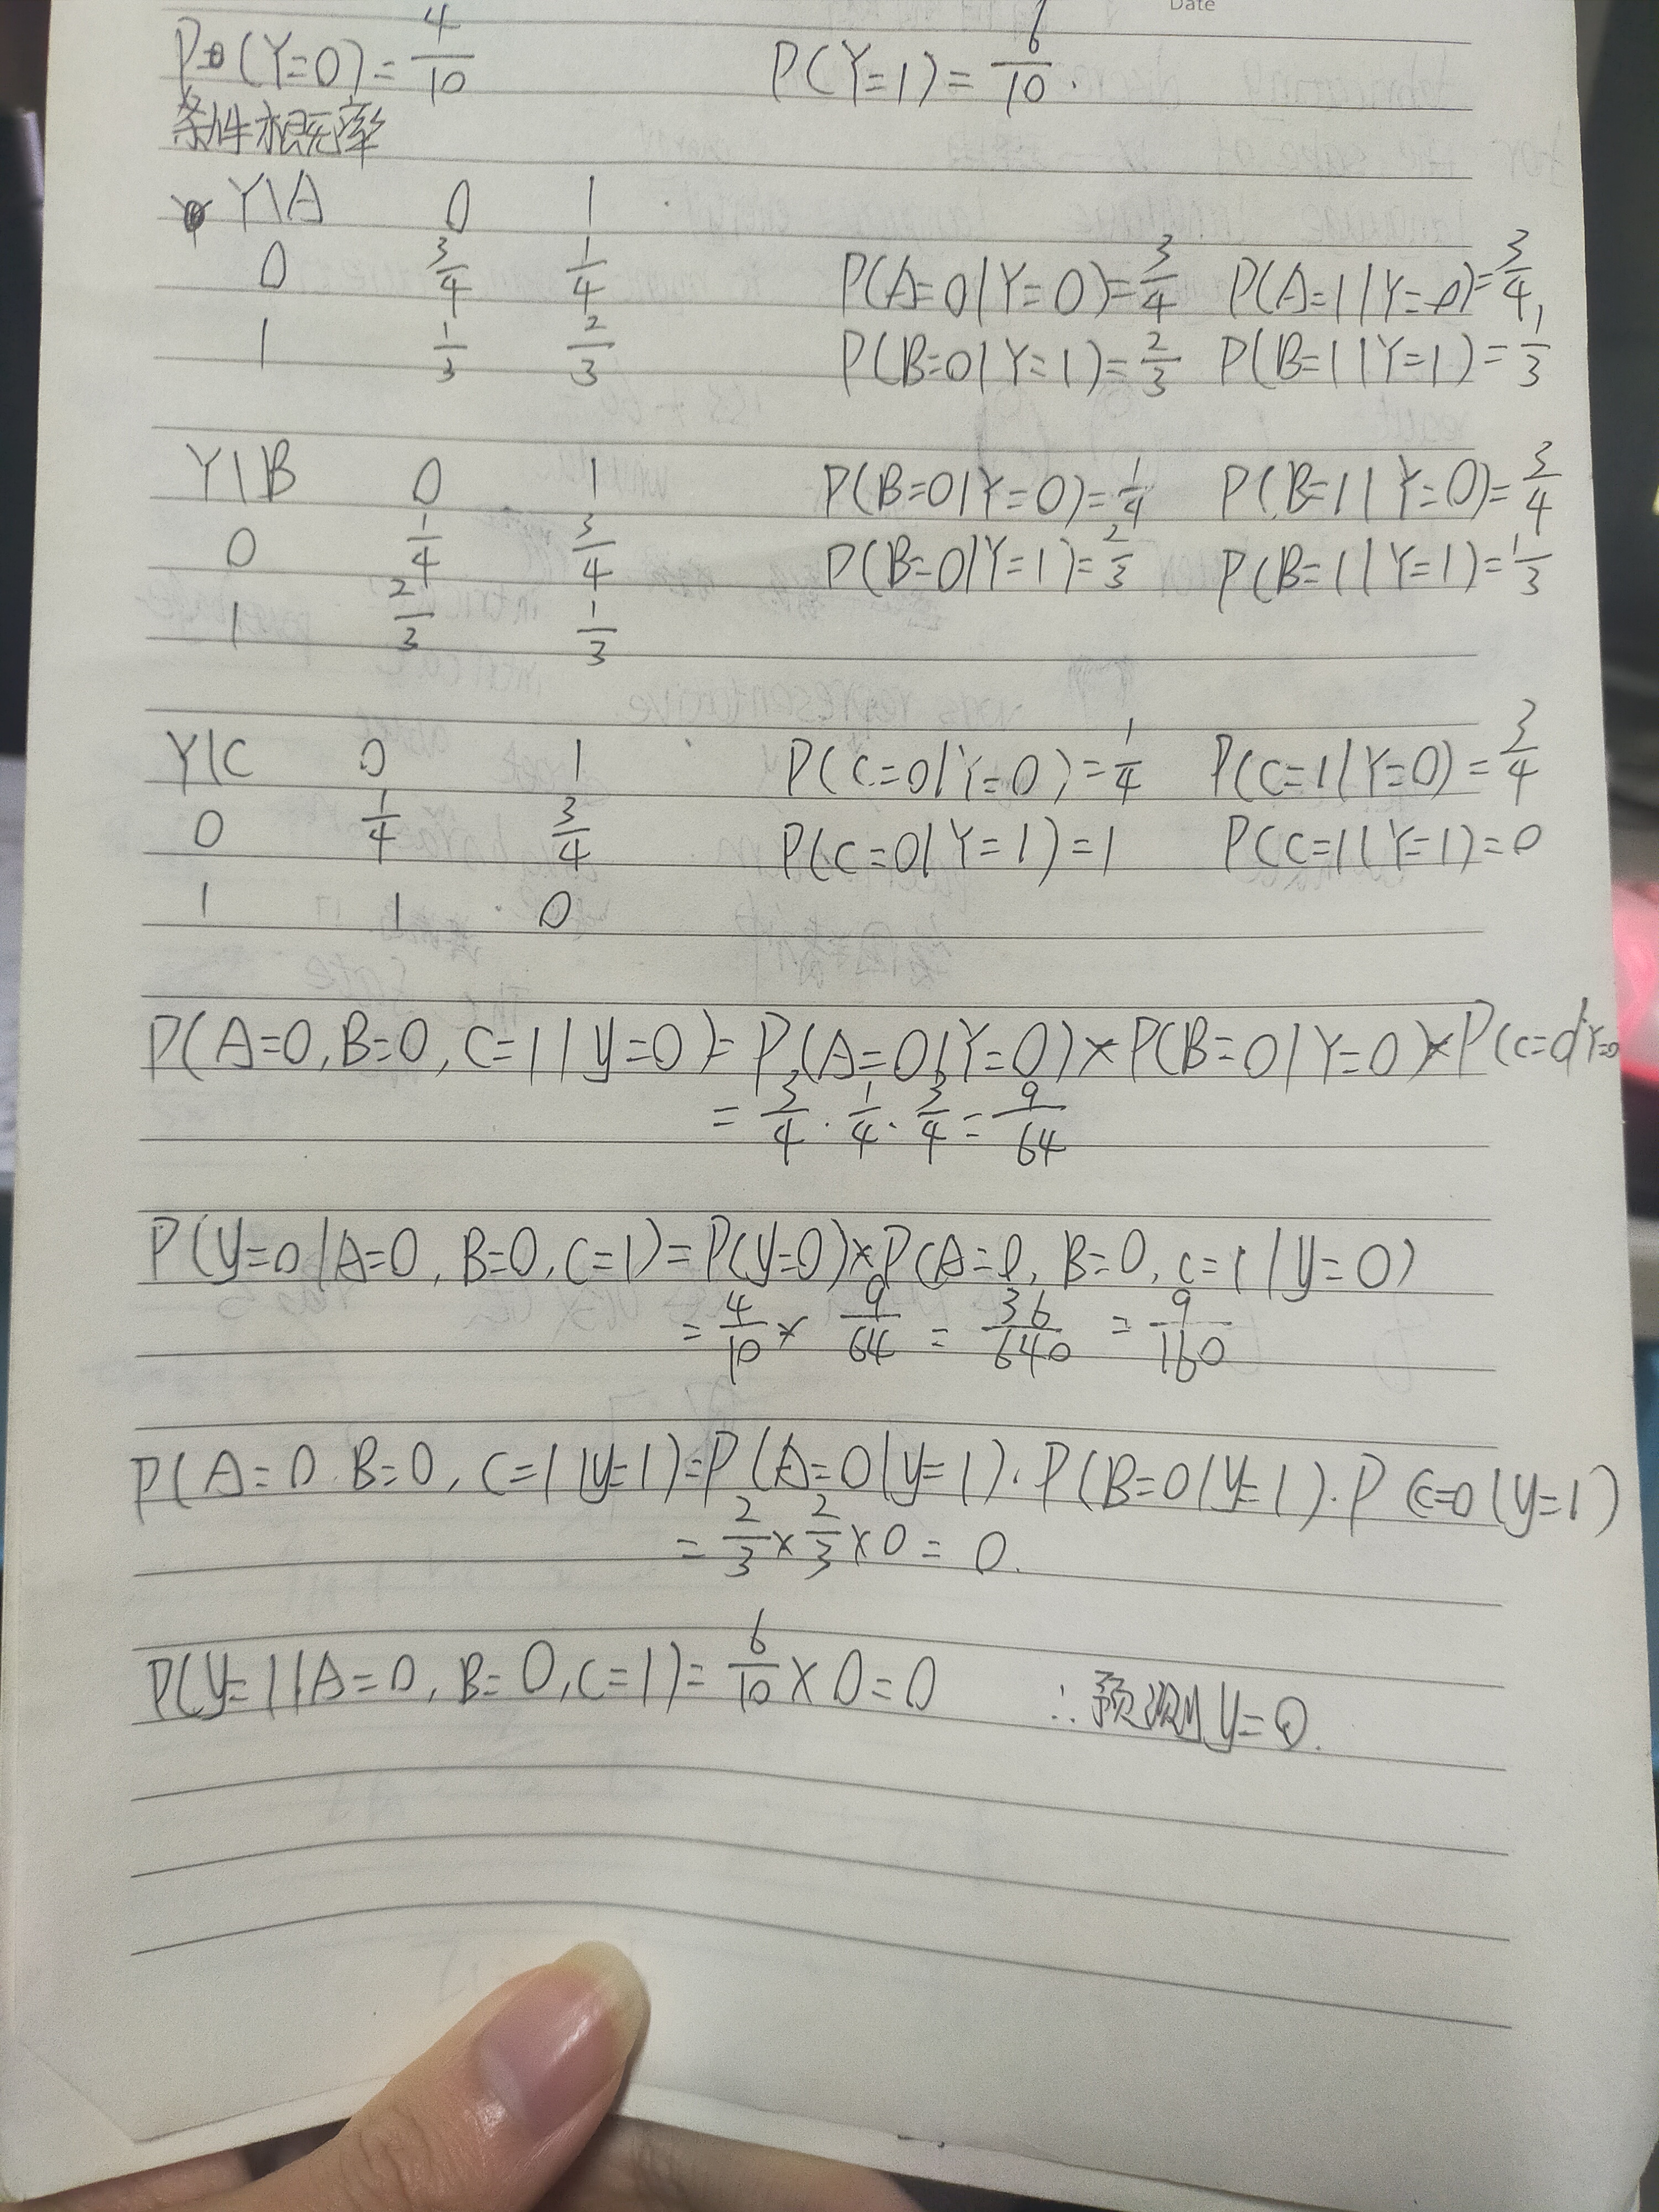 Date
P(Y=0)=4/10 P(Y=1)=6/10.
条件概率
Y\A 0 1
0 3/4 1/4 P(A=0|Y=0)=3/4 P(A=1|Y=0)=3/4,
1 1/3 2/3 P(B=0|Y=1)=2/3 P(B=1|Y=1)=1/3
Y\B 0 1 P(B=0|Y=0)=1/4 P(B=1|Y=0)=3/4
0 1/4 3/4 P(B=0|Y=1)=2/3 P(B=1|Y=1)=1/3
1 2/3 1/3
Y\C 0 1 P(C=0|Y=0)=1/4 P(C=1|Y=0)=3/4
0 1/4 3/4 P(C=0|Y=1)=1 P(C=1|Y=1)=0
1 1 0
P(A=0,B=0,C=1|y=0)=P(A=0|Y=0)×P(B=0|Y=0)×P(C=0|Y=0
=3/4·1/4·3/4=9/64
P(y=0|A=0,B=0,C=1)=P(y=0)×P(A=0,B=0,C=1|y=0)
=4/10×9/64=36/640=9/160
P(A=0.B=0,C=1|y=1)=P(A=0|y=1)·P(B=0|y=1)·P(C=0|y=1)
=2/3×2/3×0=0.
P(y=1|A=0,B=0,C=1)=6/10×0=0 ∴预测y=0.